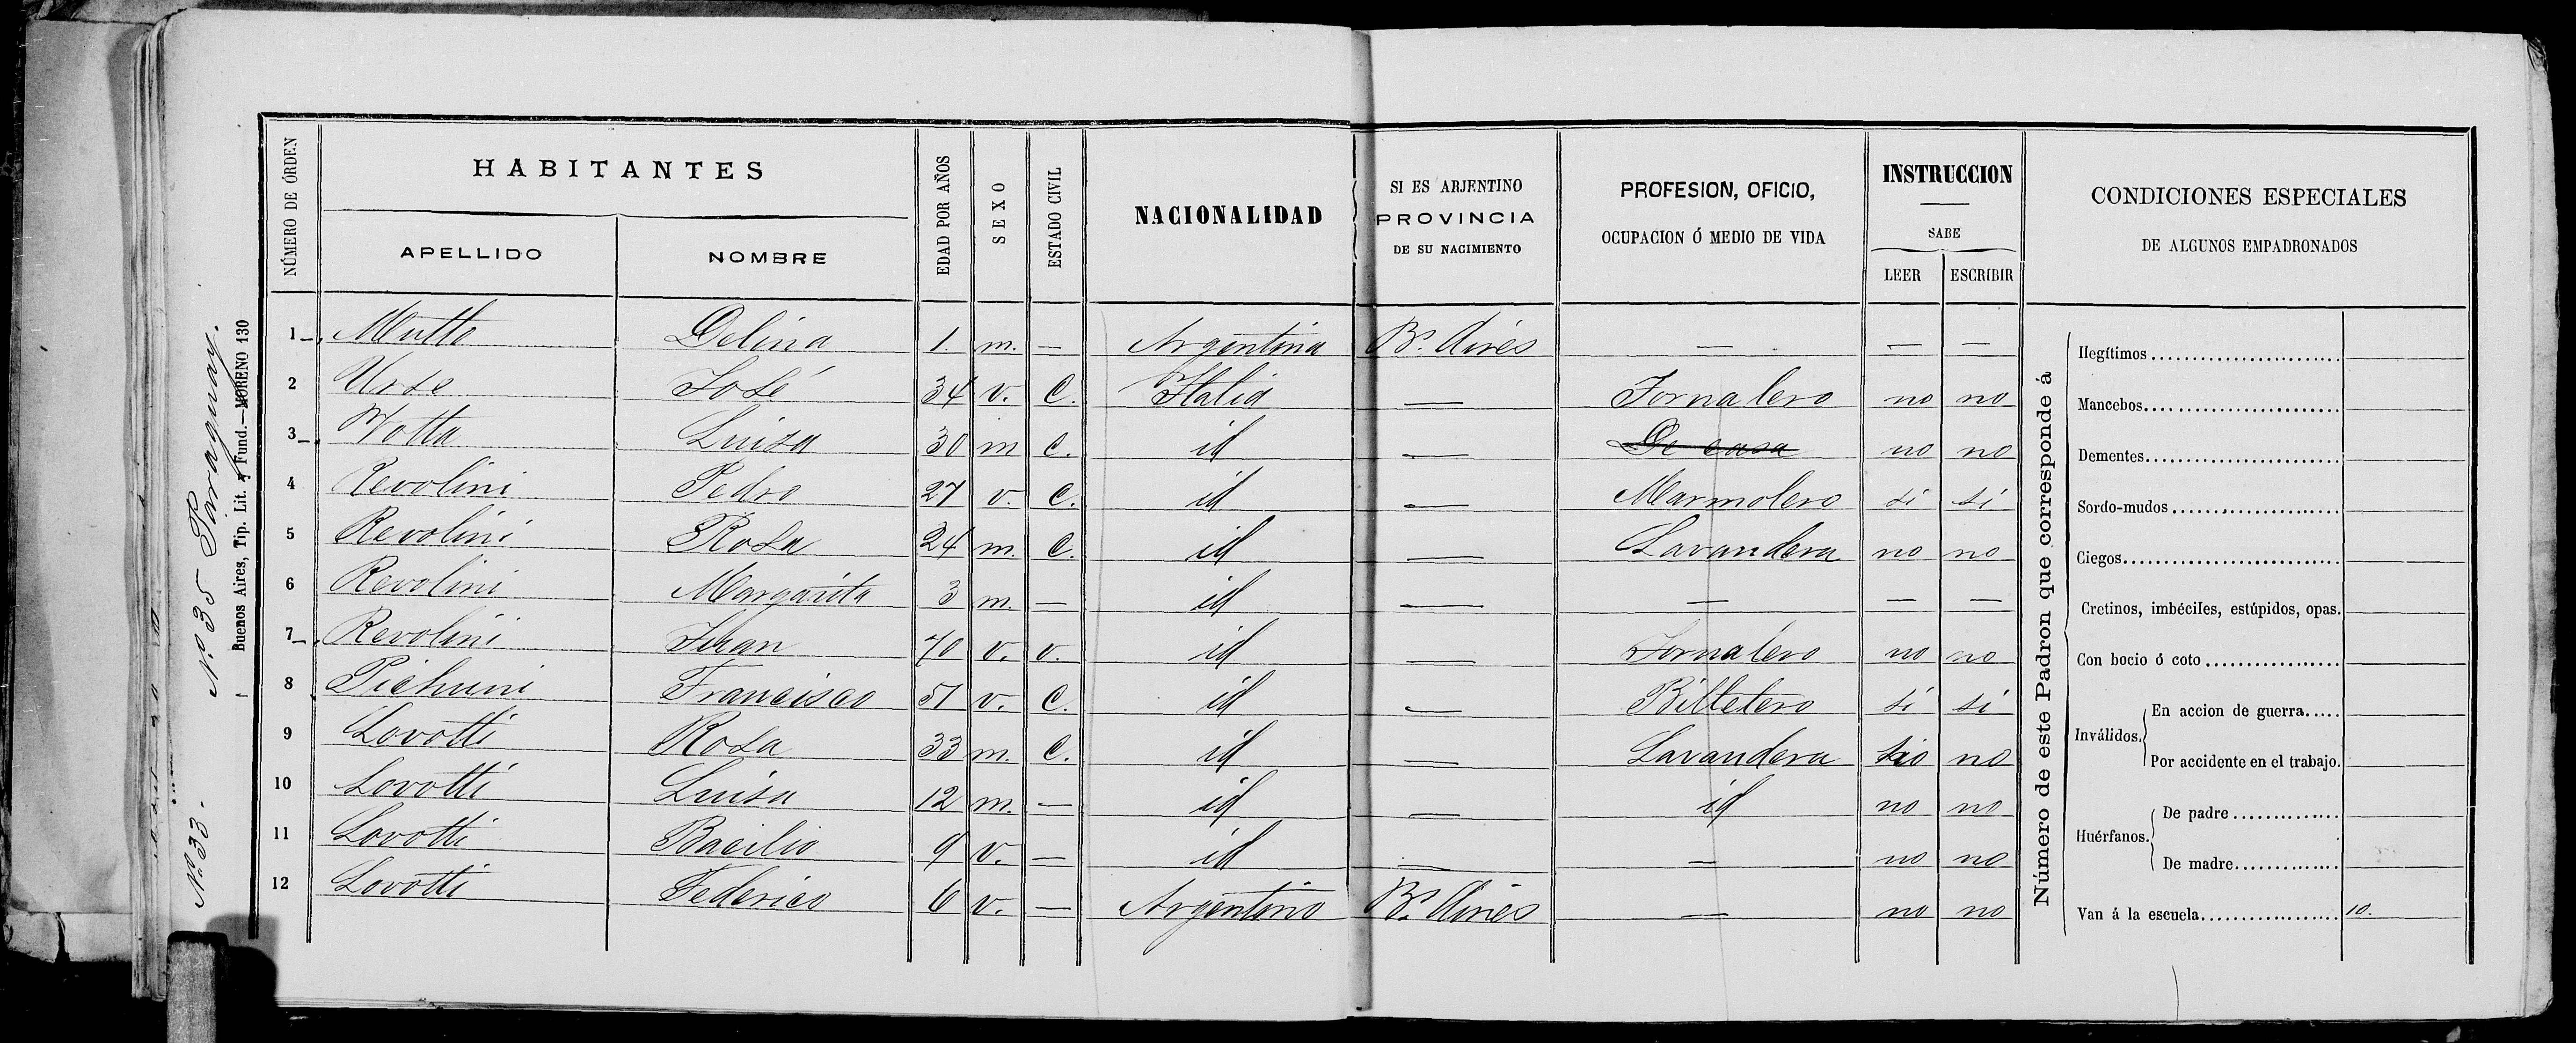 NÚMERO DE ÓRDEN
HABITANTES
APELLIDO NOMBRE
EDAD POR AÑOS
SEXO
ESTADO CIVIL
NACIONALIDAD
SI ES ARJENTINO
PROVINCIA
DE SU NACIMIENTO
PROFESION, OFICIO,
OCUPACION Ó MEDIO DE VIDA
INSTRUCCION
SABE
LEER ESCRIBIR
CONDICIONES ESPECIALES
DE ALGUNOS EMPADRONADOS
1 Mutto Delina 1. m. — Argentina Bs. Aires — — —
2 José 34 v. C. Italia — Jornalero no no
3 Luisa 30 m C. id — De casa no no
4 Revolini Pedro 27 v. C. id — Marmolero si si
5 Revolini Rosa 24 m. C. id — Lavandera no no
6 Revolini Margarita 3 m. — id — — — —
7 Revolini Juan 70 v. v. id — Jornalero no no
8 Pichuni Francisco 51 v. C. id — Billetero si si
9 Lovotti Rosa 33 m. C. id — Lavandera no no
10 Lovotti Luisa 12 m. — id — id no no
11 Lovotti Bacilio 9 v. — id — — no no
12 Lovotti Federico 6 v. — Argentino Bs. Aires — no no
Número de este Padron que corresponde á
Ilegítimos
Mancebos
Dementes
Sordo-mudos
Ciegos
Cretinos, imbéciles, estúpidos, opas.
Con bocio ó coto
Inválidos.
En accion de guerra
Por accidente en el trabajo.
Huérfanos.
De padre
De madre
Van á la escuela 10.
Buenos Aires, Tip. Lit. y Fund.—MORENO 130
No. 35 Paraguay.
No. 33.